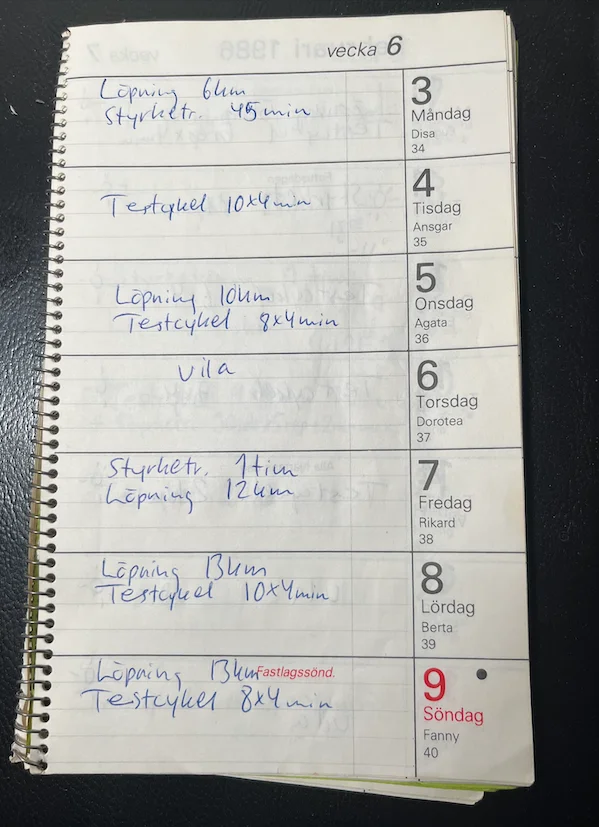 vecka 6
Löpning 6km
Styrketr. 45min
3
Måndag
Disa
34
Testcykel 10x4min
4
Tisdag
Ansgar
35
Löpning 10km
Testcykel 8x4min
5
Onsdag
Agata
36
Vila
6
Torsdag
Dorotea
37
Styrketr. 1tim
Löpning 12km
7
Fredag
Rikard
38
Löpning 13km
Testcykel 10x4min
8
Lördag
Berta
39
Löpning 13km Fastlagssönd.
Testcykel 8x4min
9
Söndag
Fanny
40